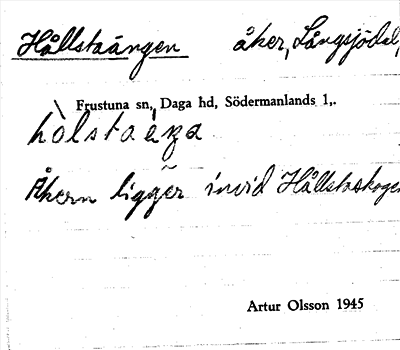 Hållstaängen åker, Långsjödal,
Frustuna sn, Daga hd, Södermanlands l,.
Åkern ligger invid Hållstaskogen
Artur Olsson 1945